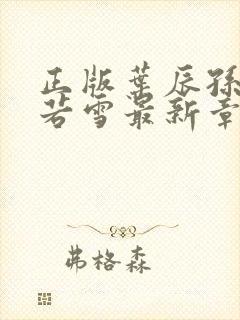 正版叶辰孙
若雪最新章
弗格森